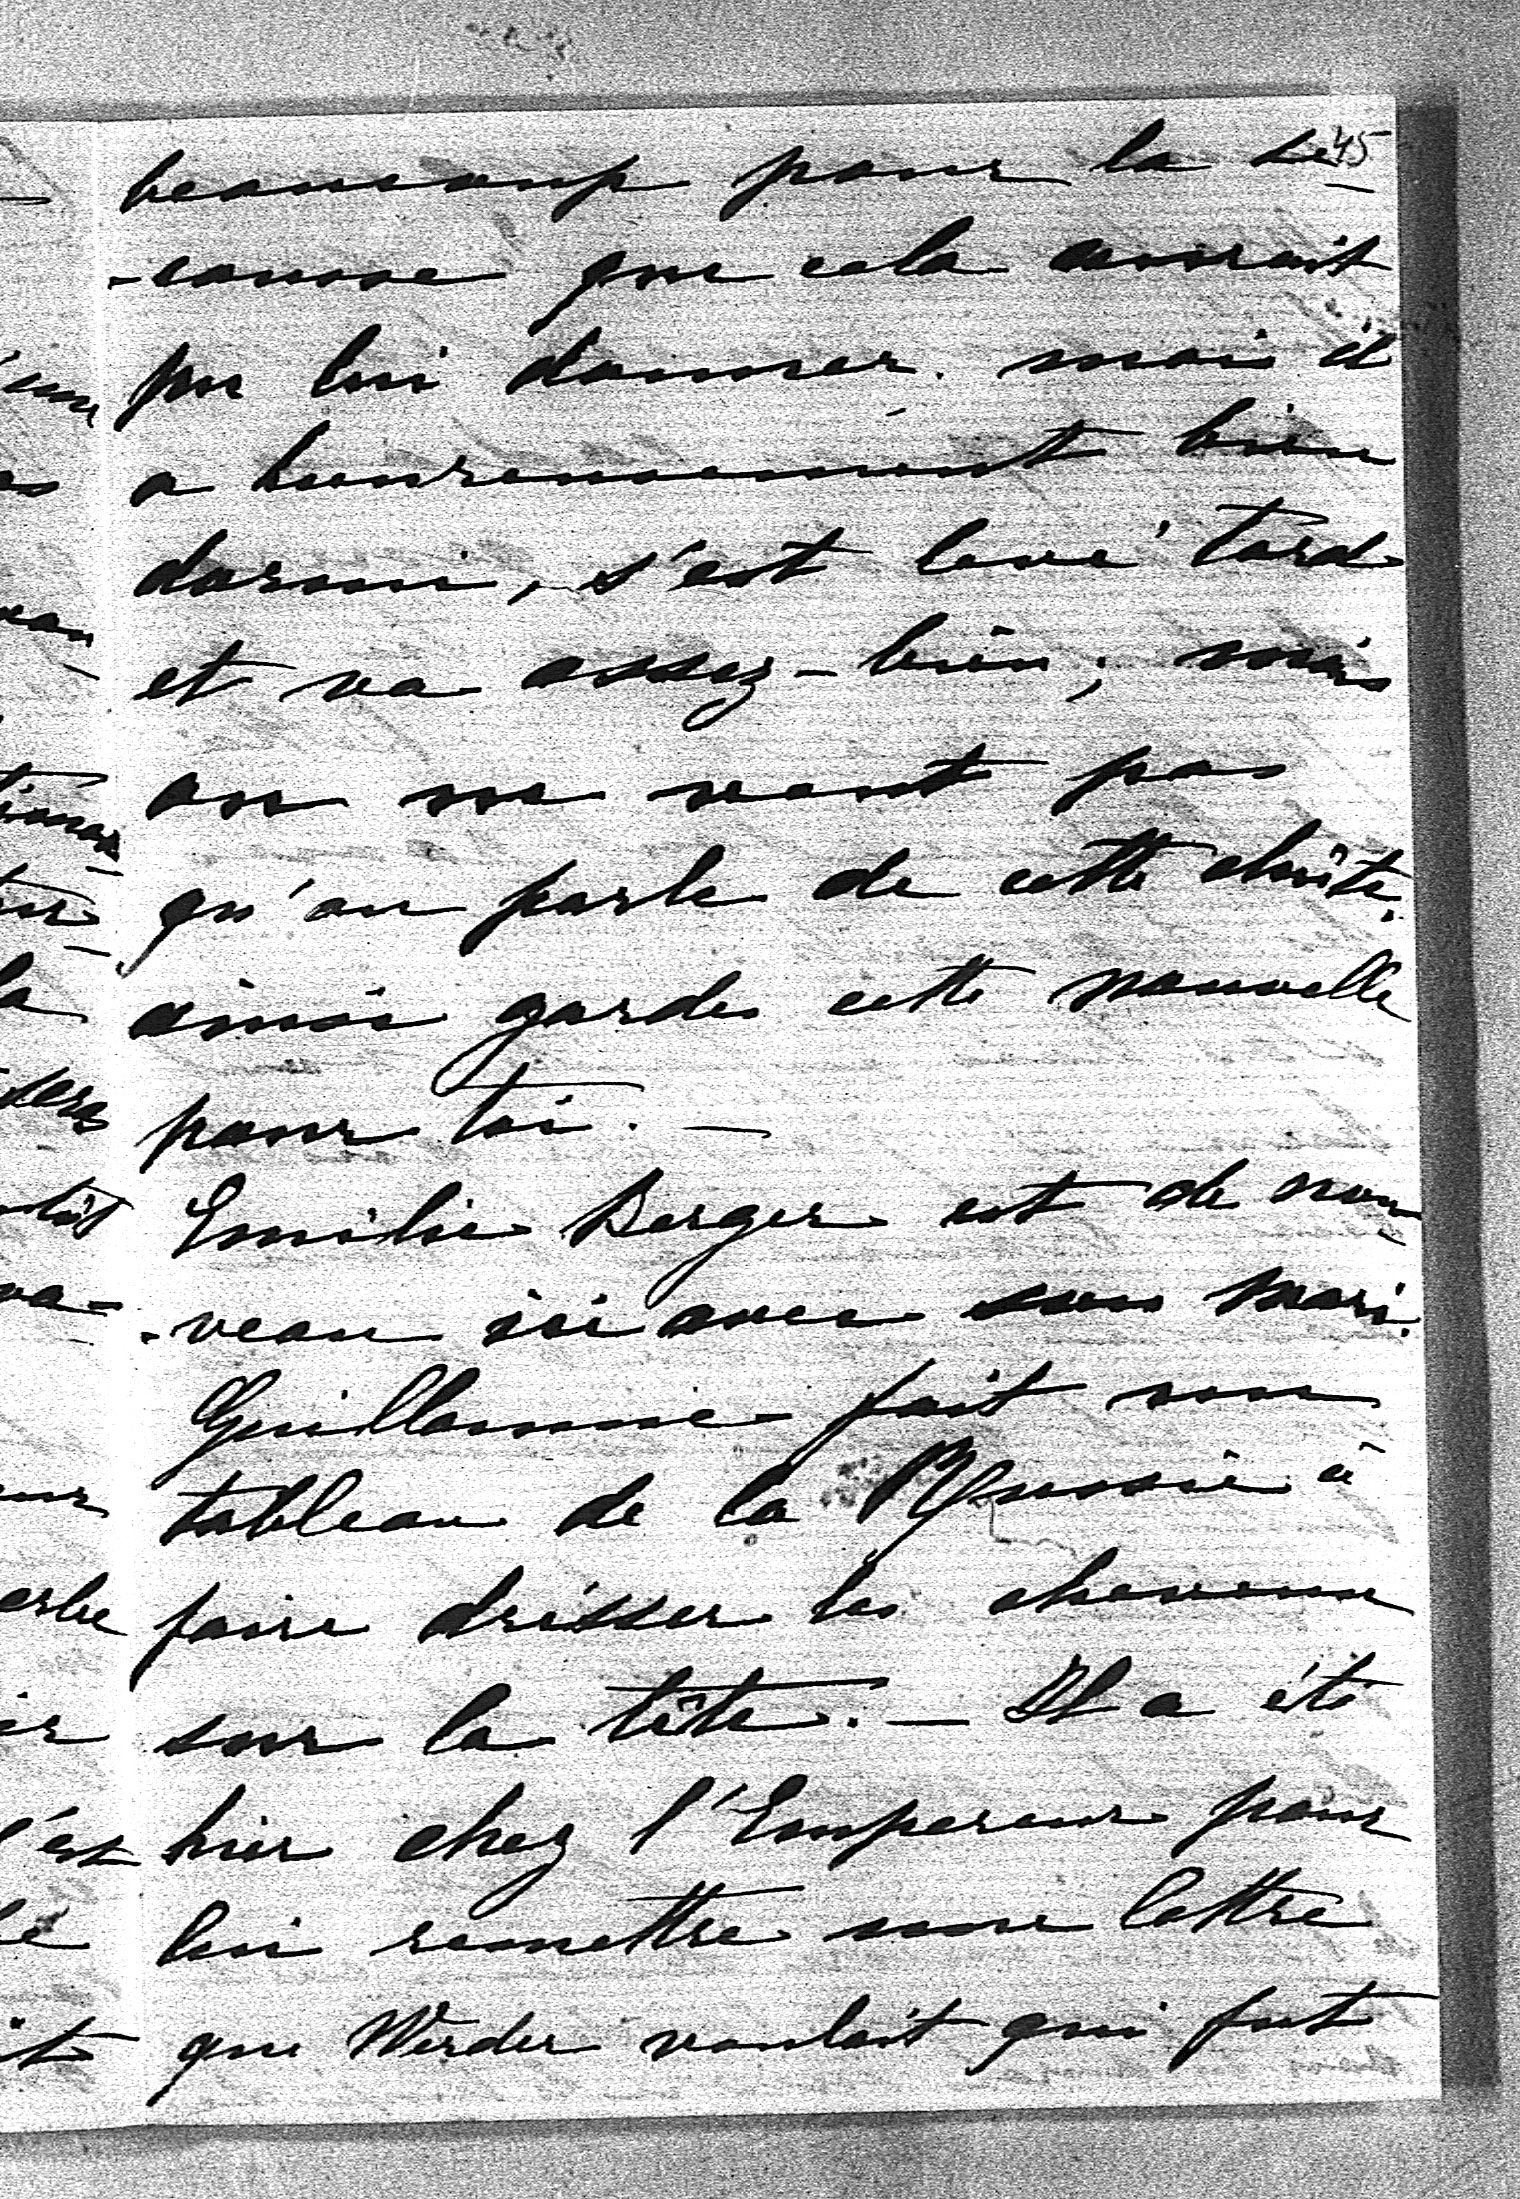 45
beaucoup pour la se-
-cousse que cela auroit
pu lui donner. mais il
a heureusement bien
dormi, s'est levé tard
et va assez-bien; mais
on ne veut pas
qu'on parle de cette chûte.
ainsi gardes cette nouvelle
pour toi. —
Emilie Berger est de nou-
-veau ici avec son mari.
Guillaume fait un
tableau de la Russie à
faire drésser les cheveux
sur la tête. — Il a été
hier chez l'Empereur pour
lui remettre une lettre
que Werder voulait qui fut